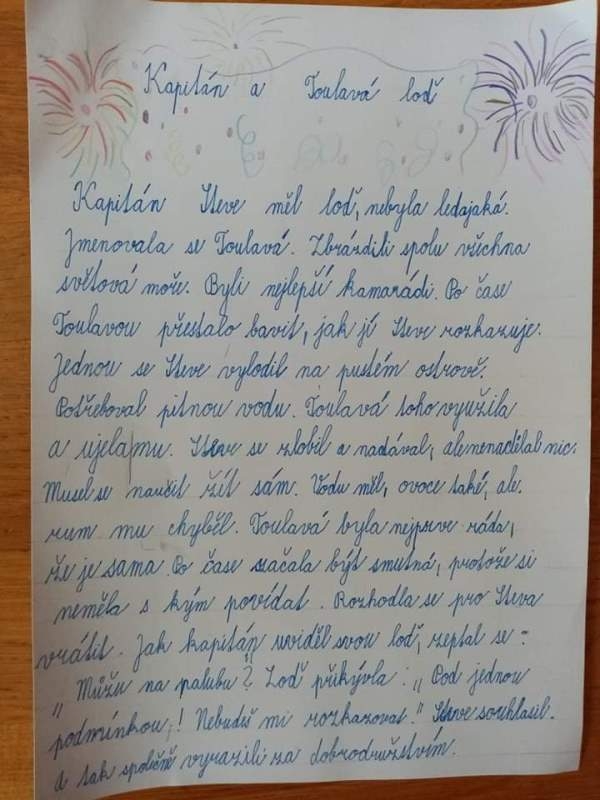 Kapitán a Toulavá loď
Kapitán Steve měl loď, nebyla ledajaká.
Jmenovala se Toulavá. Zbrázdili spolu všechna
světová moře. Byli nejlepší kamarádi. Po čase
Toulavou přestalo bavit, jak jí Steve rozkazuje.
Jednou se Steve vylodil na pustém ostrově.
Potřeboval pitnou vodu. Toulavá toho využila
a ujela mu. Steve se zlobil a nadával, ale nenadělal nic.
Musel se naučit žít sám. Vodu měl, ovoce také, ale
rum mu chyběl. Toulavá byla nejprve ráda,
že je sama. Po čase začala být smutná, protože si
neměla s kým povídat. Rozhodla se pro Steva
vrátit. Jak kapitán uviděl svou loď, zeptal se:
„Můžu na palubu?" Loď přikývla: „Pod jednou
podmínkou,! Nebudeš mi rozkazovat." Steve souhlasil.
A tak společně vyrazili za dobrodružstvím.